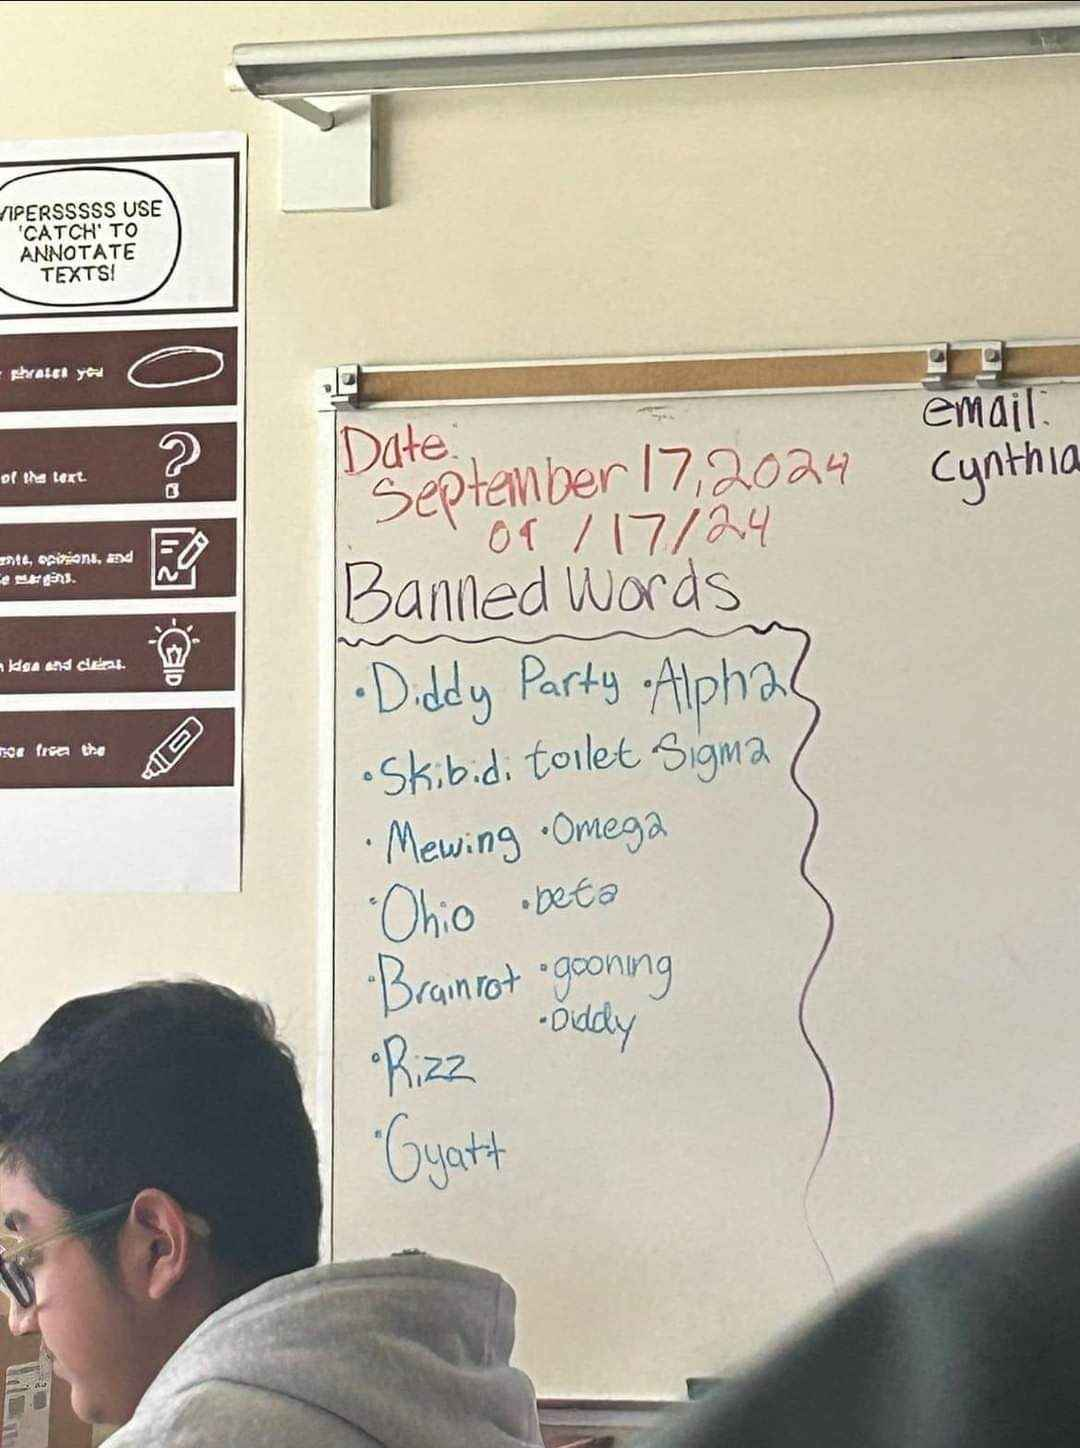 VIPERSSSSS USE
'CATCH' TO
ANNOTATE
TEXTS!
phrases you
of the text.
opinions, and
margins.
idea and claims.
from the
email:
Cynthia
Date:
September 17, 2024
09/17/24
Banned Words
• Diddy Party • Alpha
• Skibidi toilet • Sigma
• Mewing • Omega
• Ohio • beta
• Brainrot • gooning
• Diddy
• Rizz
• Gyatt